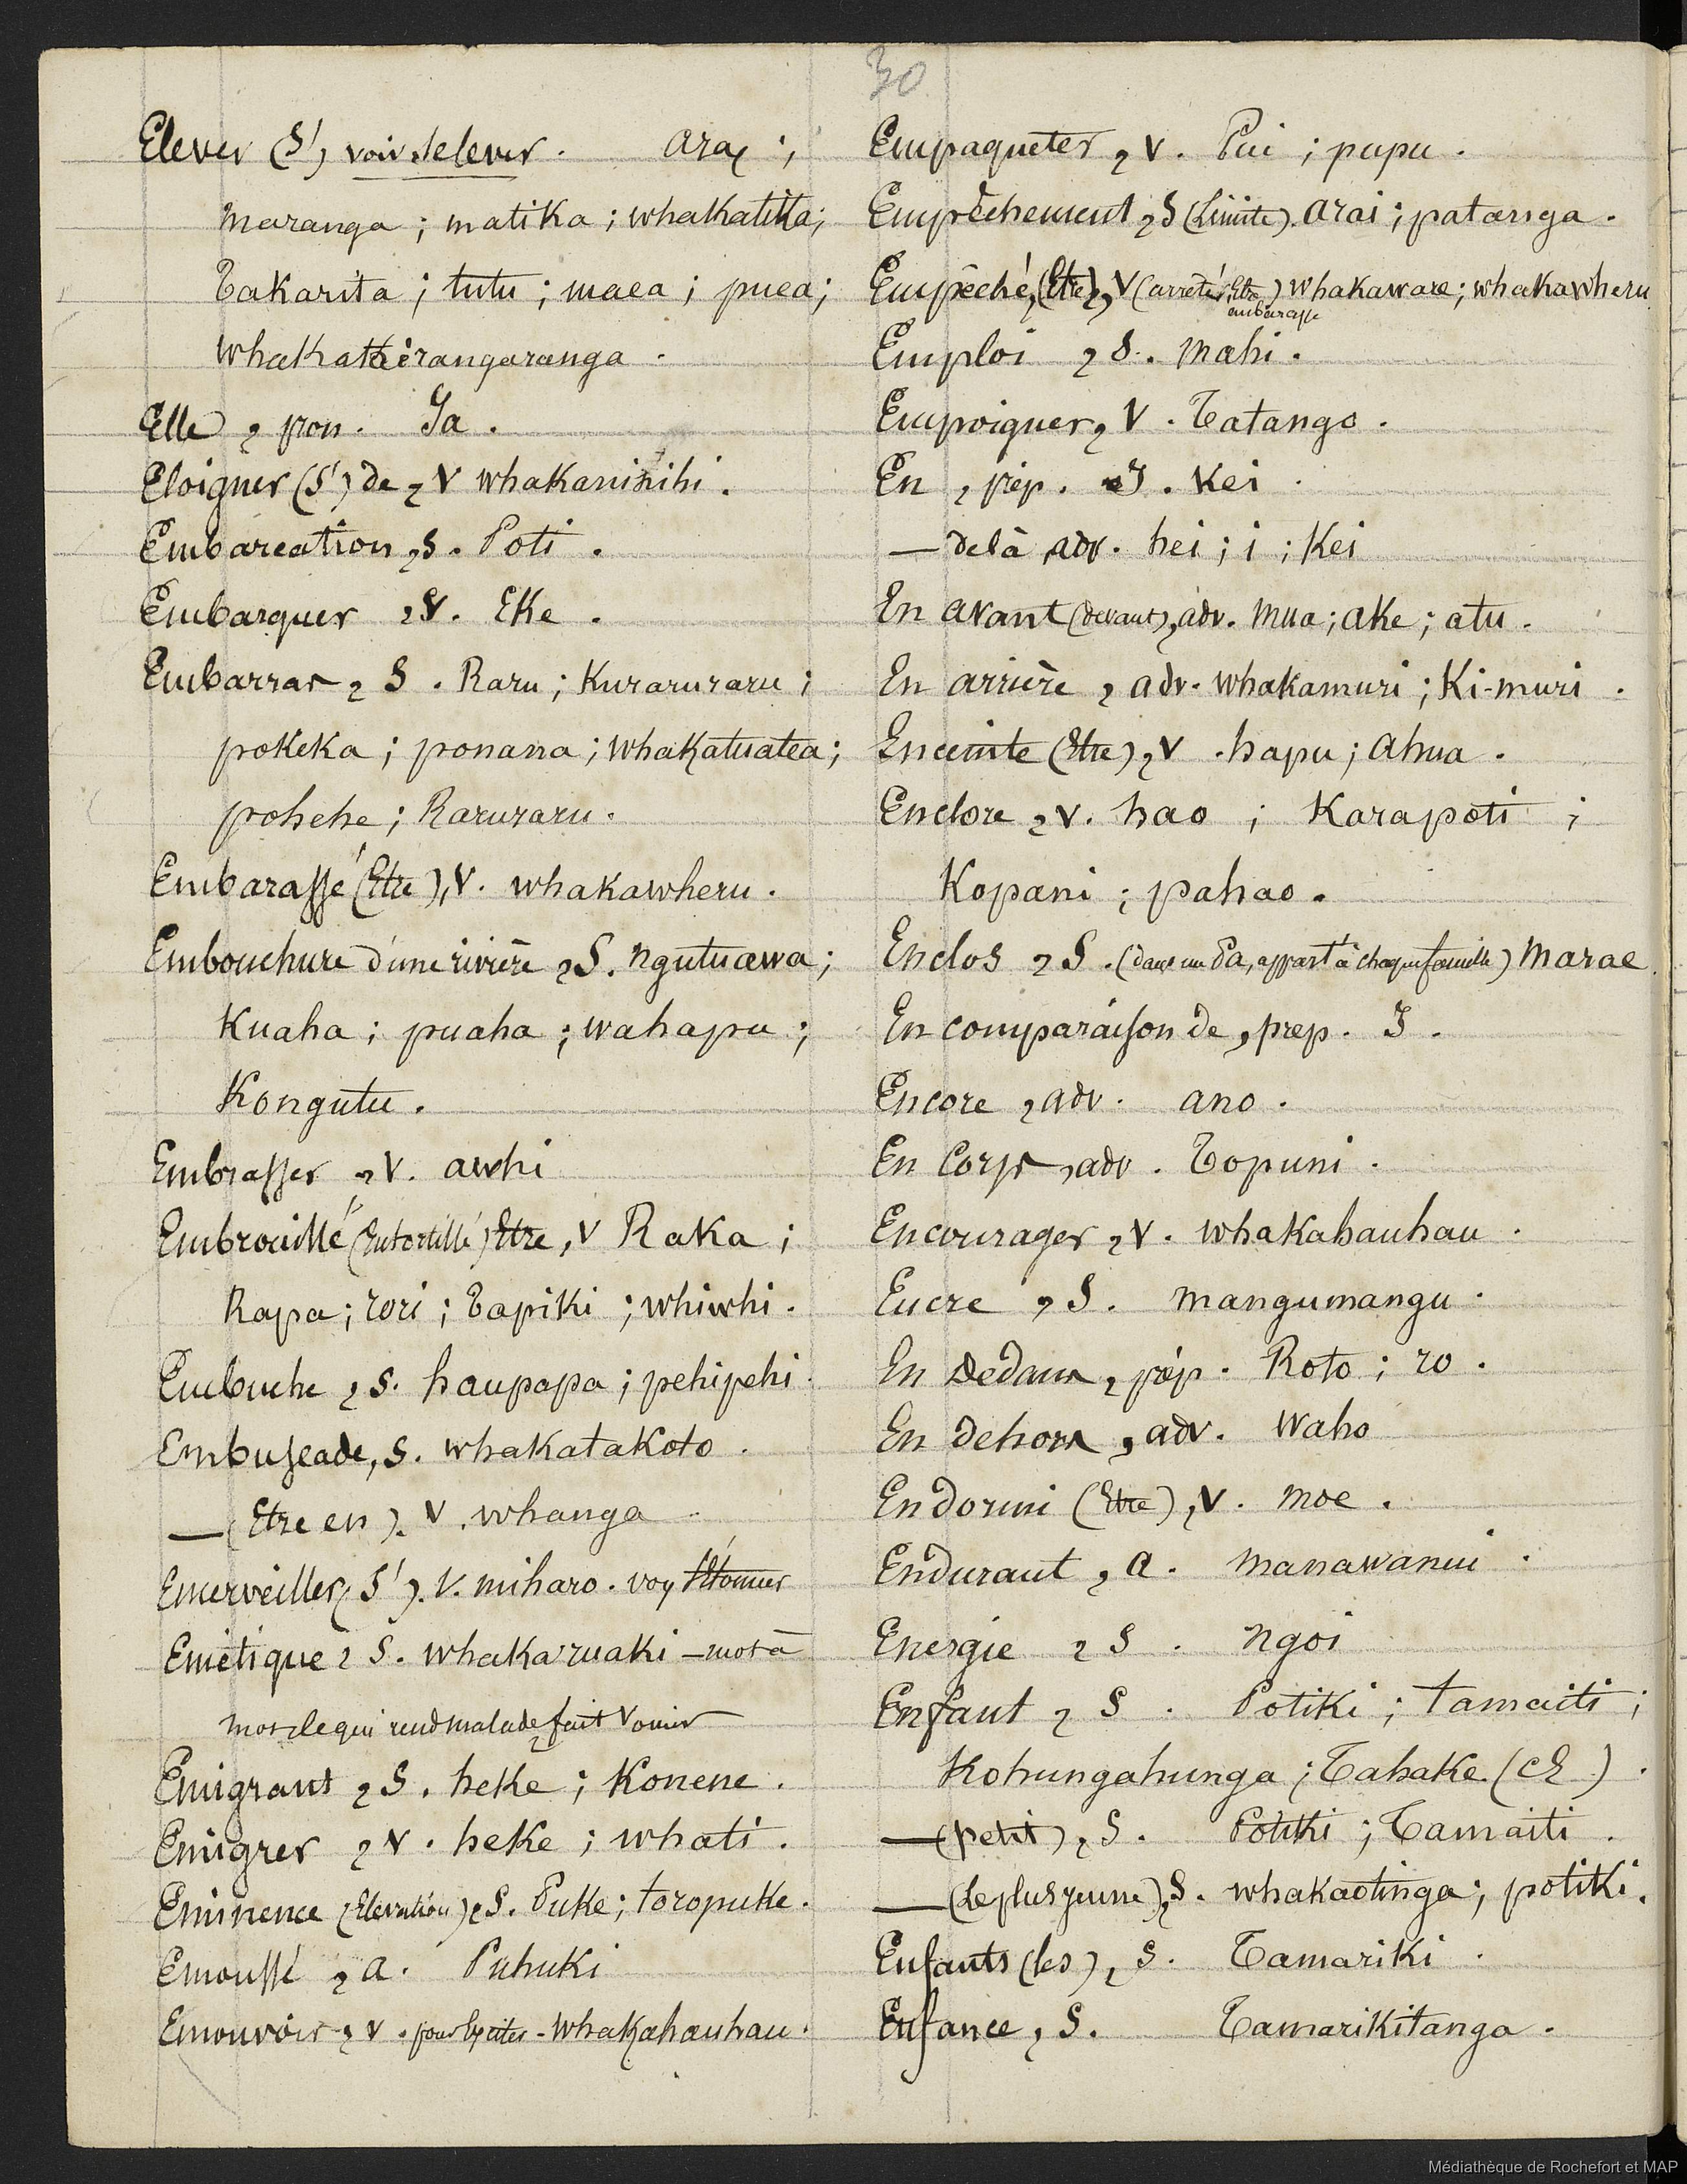 30
Elever (S') voir se lever. ara ;
maranga ; matika ; whakatika ;
Takarita ; tutu ; maea ; puea ;
whakatairangaranga.
Elle, pron. Ia.
Eloigner (S') de, V whakaninihi.
Embarcation, S. Poti.
Embarquer, V. Eke.
Embarras, S. Raru ; Kuraruraru ;
pokeka ; ponana ; whakatuatea ;
pohehe ; Raruraru.
Embarassé (Etre), V. whakawheru.
Embouchure d'une rivière, S. ngutuawa ;
Kuaha ; puaha ; wahapu ;
Kongutu.
Embrasser, V. awhi
Embrouillé (Entortillé) Etre, V Raka ;
Rapa ; rori ; Tapiki ; whiwhi.
Embuche, S. haupapa ; pehipehi.
Embuscade, S. whakatakoto.
— (Etre en). V. whanga
Emerveiller (S'). V. miharo. voy s'étonner
Emétique, S. whakaruaki — mot à
mot, le qui rend malade, fait vomir
Emigrant, S. heke ; Konene.
Emigrer, V. heke ; whati.
Eminence (Elevation), S. Puke ; toropuke.
Emoussé, a. Puhuki
Emouvoir, V. pour exciter - whakahauhau.
Empaqueter, V. Pui ; pupu.
Empêchement, S (Limite). arai ; patanga.
Empêché, (Etre), V (arrêté, Etre) whakaware ; whakawheru
embarasse
Emploi, S. mahi.
Empoigner, V. Tatango.
En, prép. I. Kei.
— delà adv. hei ; i ; Kei
En avant (devant), adv. mua ; ake ; atu.
En arrière, adv. whakamuri ; Ki-muri.
Enceinte (Etre), V. hapu ; ahua.
Enclore, V. hao ; Karapoti ;
Kopani ; pahao.
Enclos, S. (dans un Pa, appart' à chaque famille) marae.
En comparaison de, prep. I.
Encore, adv. ano.
En Corps, adv. Topuni.
Encourager, V. whakahauhau.
Encre, S. mangumangu.
En dedans, prép. Roto ; ro.
En dehors, adv. waho
Endormi (Etre), V. moe.
Endurant, a. manawanui.
Energie, S. ngoi
Enfant, S. Potiki ; tamaiti ;
Kohungahunga ; Tahake.
— (petit), S. Potiki ; Tamaiti.
— (Le plus jeune), S. whakaotinga ; potiki.
Enfants (les), S. Tamariki.
Enfance, S. Tamarikitanga.
Médiathèque de Rochefort et MAP